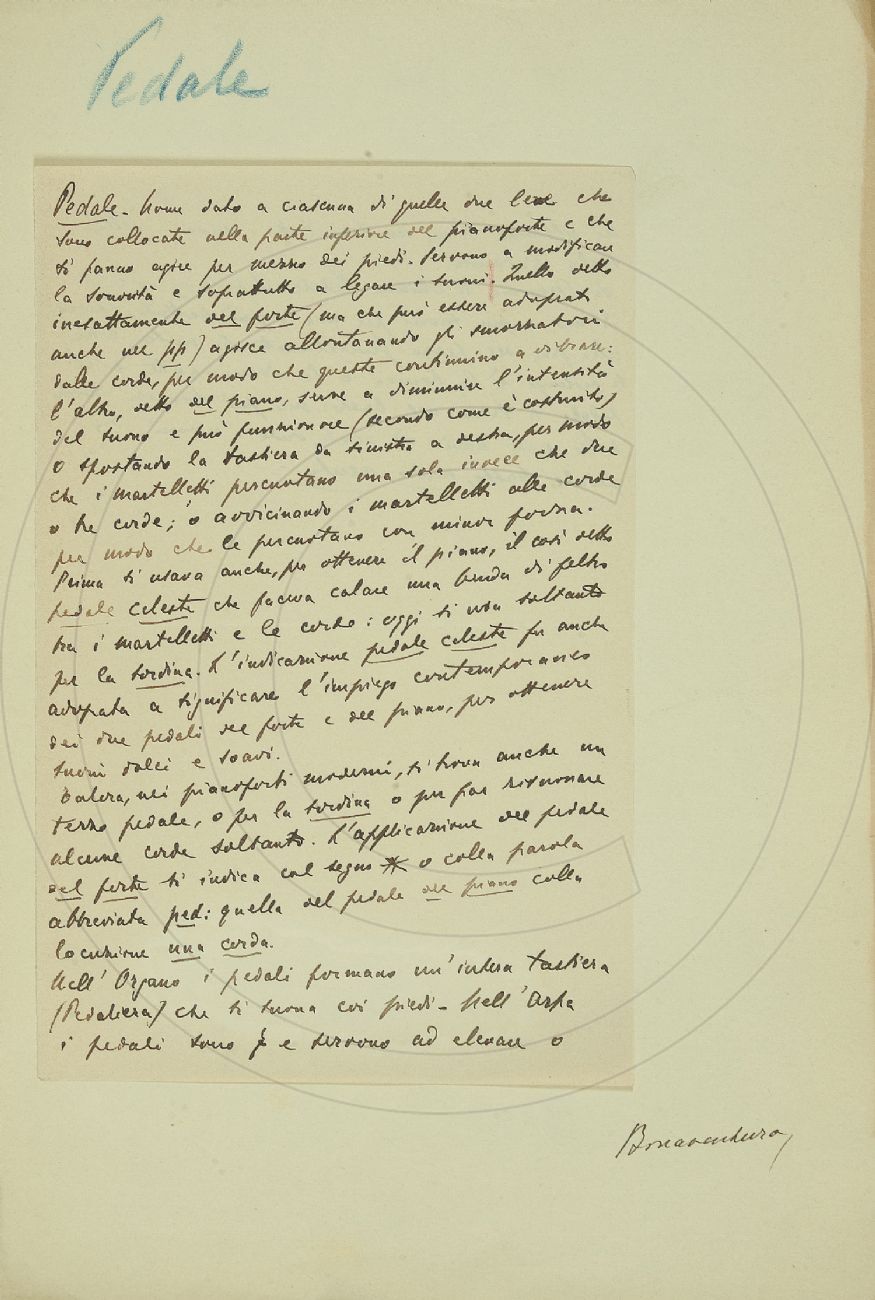 Pedale
Pedale - Nome dato a ciascuna di quelle due leve che
sono collocate nella parte inferiore del pianoforte e che
si fanno agire per mezzo dei piedi. Servono a modificare
la sonorità e soprattutto a legare i suoni. Quello detto
inesattamente del forte (ma che può essere adoprato
anche nel pp) agisce allontanando gli smorzatori
dalle corde, per modo che queste continuino a vibrare:
l'altro, detto del piano, serve a diminuire l'intensità
del suono e può funzionare (secondo come è costruito)
o spostando la tastiera da sinistra a destra, per modo
che i martelletti percuotano una sola invece che due
o tre corde; o avvicinando i martelletti alle corde
per modo che le percuotano con minor forza.
Prima si usava anche, per ottenere il piano, il così detto
pedale celeste che faceva calare una benda di feltro
tra i martelletti e le corde: oggi si usa soltanto
per la sordina. L'indicazione pedale celeste fu anche
adoprata a significare l'impiego contemporaneo
dei due pedali del forte e del piano, per ottenere
suoni dolci e soavi.
Talora, nei pianoforti moderni, si trova anche un
terzo pedale, o per la sordina o per far risuonare
alcune corde soltanto. L'applicazione del pedale
del forte si indica col segno o colla parola
abbreviata ped: quella del pedale del piano colla
locuzione una corda.
Nell'Organo i pedali formano un'intera tastiera
(Pedaliera) che si suona coi piedi - Nell'Arpa
i pedali sono 7 e servono ad elevare o
Bonaventura